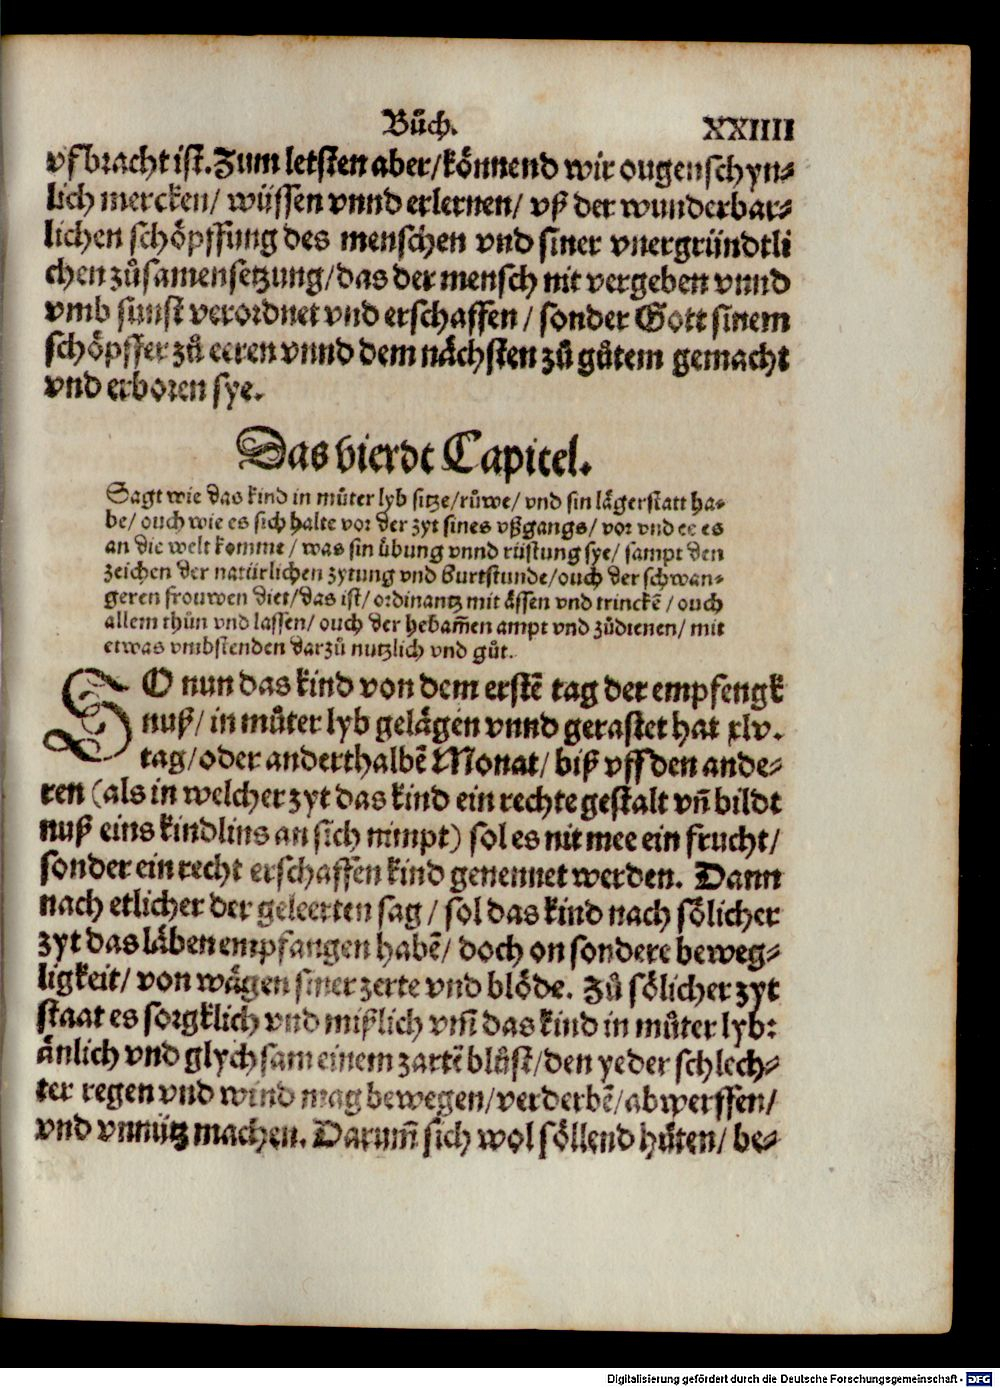 Bůch. XXIIII
vfbracht ist. Zum letsten aber/ könnend wir ougenschyn-
lich mercken/ wüssen vnnd erlernen/ vß der wunderbar-
lichen schöpffung des menschen vnd siner vnergründtli
chen zůsamensetzung/ das der mensch nit vergeben vnnd
vmb sunst verordnet vnd erschaffen/ sonder Gott sinem
schöpffer zů eeren vnnd dem nächsten zů gůtem gemacht
vnd erboren sye.
Das vierdt Capitel.
Sagt wie das kind in můter lyb sitze/ růwe/ vnd sin lägerstatt ha-
be/ ouch wie es sich halte vor der zyt sines vßgangs/ vor vnd ee es
an die welt komme/ was sin übung vnnd rüstung sye/ sampt den
zeichen der natürlichen zytung vnd burtstunde/ ouch der schwan-
geren frouwen diet/ das ist/ ordinantz mit ässen vnd trinckē/ ouch
allem thůn vnd lassen/ ouch der hebam̄en ampt vnd zůdienen/ mit
etwas vmbstenden darzů nutzlich vnd gůt.
SO nun das kind von dem erstē tag der empfengk
nuß/ in můter lyb gelägen vnnd gerastet hat xlv.
tag/ oder anderthalbē Monat/ biß vff den ande-
ren (als in welcher zyt das kind ein rechte gestalt vn̄ bildt
nuß eins kindlins an sich nimpt) sol es nit mee ein frucht/
sonder ein recht erschaffen kind genennet werden. Dann
nach etlicher der geleerten sag/ sol das kind nach sölicher
zyt das läben empfangen habē/ doch on sondere beweg-
ligkeit/ von wägen siner zerte vnd blöde. Zů sölicher zyt
staat es sorgklich vnd mißlich vm̄ das kind in můter lyb:
änlich vnd glych sam einem zartē blůst/ den yeder schlech-
ter regen vnd wind mag bewegen/ verderbē/ abwerffen/
vnd vnnütz machen. Darum̄ sich wol söllend hůten/ be-
Digitalisierung gefördert durch die Deutsche Forschungsgemeinschaft - DFG